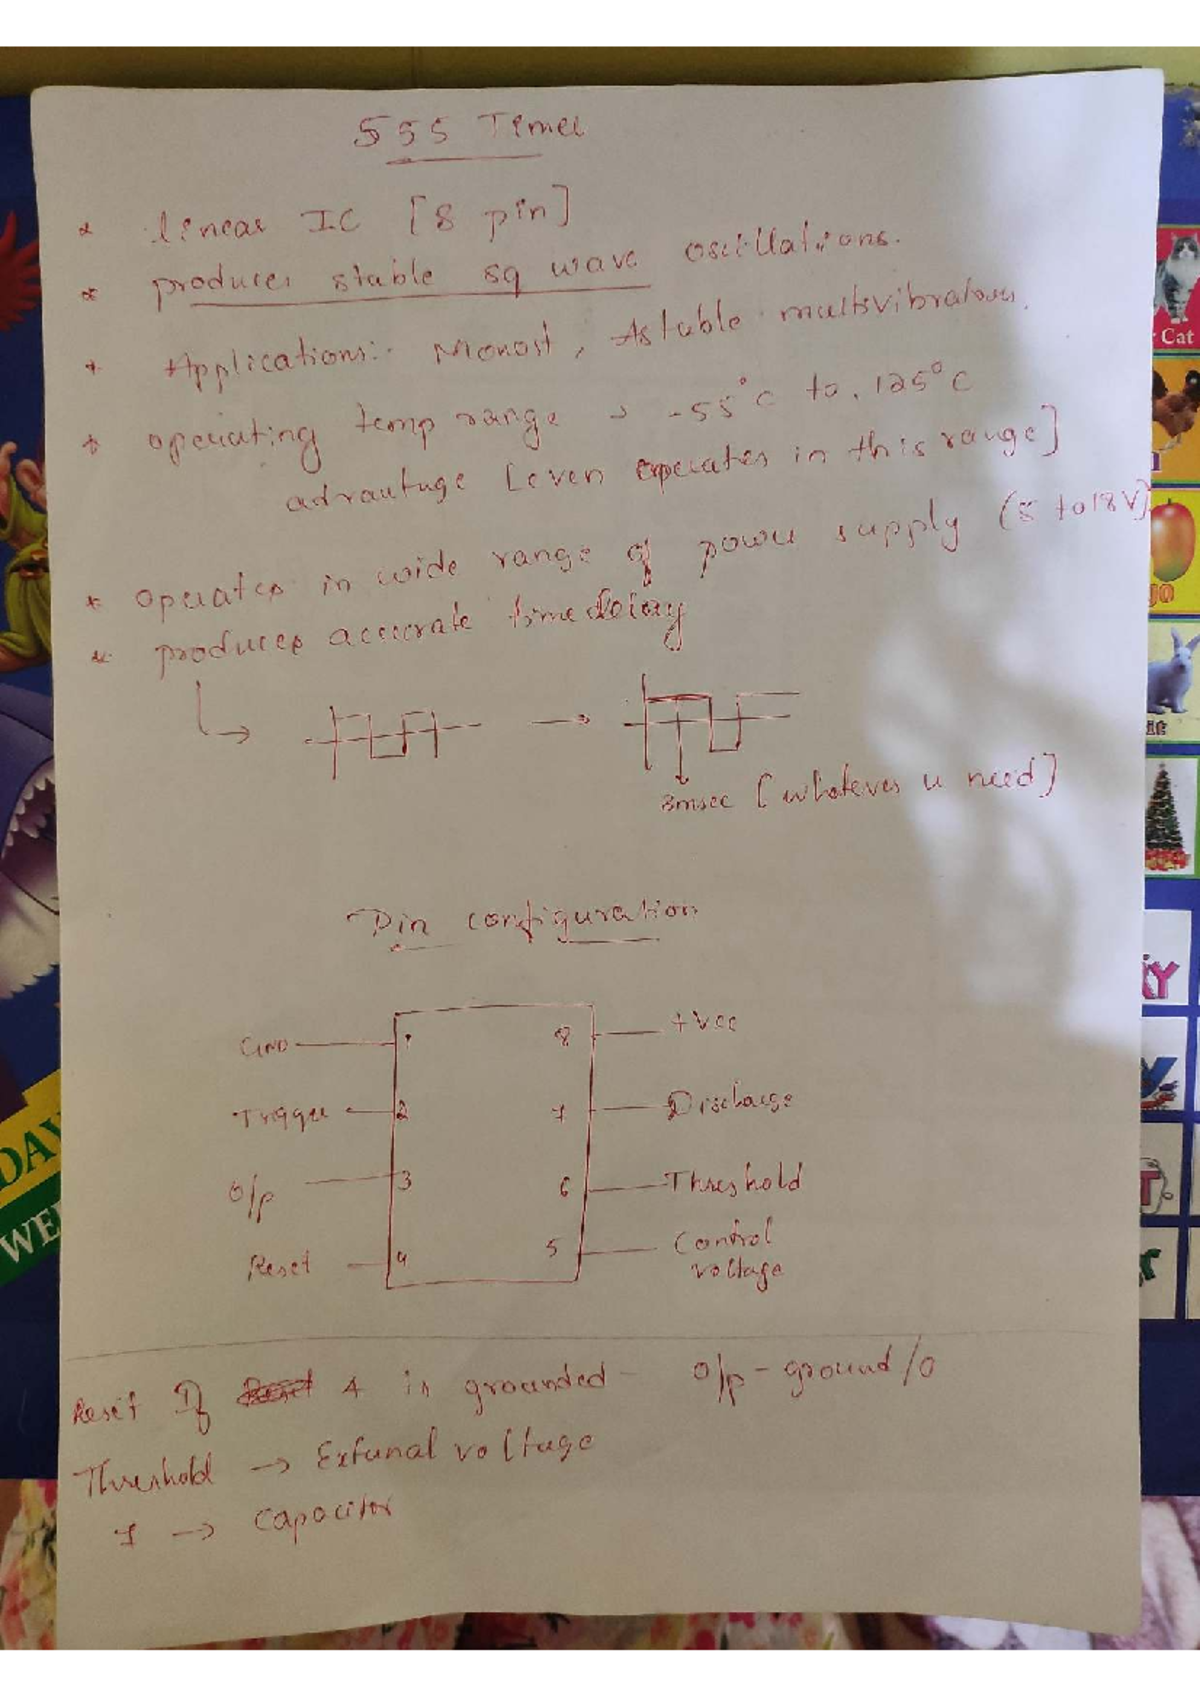 555 Timer
* linear IC [8 pin]
* produces stable sq wave oscillations.
* Applications:- Monost, Astable multivibrators.
* operating temp range → -55°C to 125°C
advantage [even operates in this range]
* operates in wide range of power supply (5 to 18V)
* produces accurate time delay
3msec [whatever u need]
Pin configuration
GND 1 8 +Vcc
Trigger 2 7 Discharge
O/p 3 6 Threshold
Reset 4 5 Control
voltage
Reset If 4 is grounded - O/p - ground/0
Threshold → External voltage
7 → Capacitor
Cat
DAY
WE